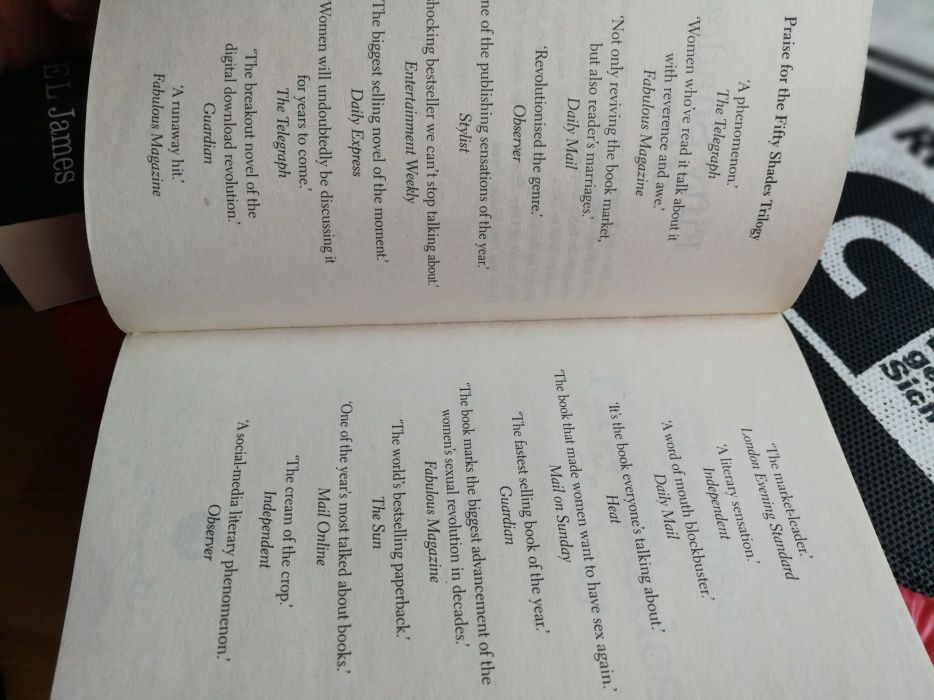 Praise for the Fifty Shades Trilogy
‘A phenomenon.’
The Telegraph
‘Women who’ve read it talk about it
with reverence and awe.’
Fabulous Magazine
‘Not only reviving the book market,
but also reader’s marriages.’
Daily Mail
‘Revolutionised the genre.’
Observer
ne of the publishing sensations of the year.’
Stylist
shocking bestseller we can’t stop talking about.’
Entertainment Weekly
The biggest selling novel of the moment.’
Daily Express
Women will undoubtedly be discussing it
for years to come.’
The Telegraph
‘The breakout novel of the
digital download revolution.’
Guardian
‘A runaway hit.’
Fabulous Magazine
‘The market-leader.’
London Evening Standard
‘A literary sensation.’
Independent
‘A word of mouth blockbuster.’
Daily Mail
‘It’s the book everyone’s talking about.’
Heat
‘The book that made women want to have sex again.’
Mail on Sunday
‘The fastest selling book of the year.’
Guardian
‘The book marks the biggest advancement of the
women’s sexual revolution in decades.’
Fabulous Magazine
‘The world’s bestselling paperback.’
The Sun
‘One of the year’s most talked about books.’
Mail Online
‘The cream of the crop.’
Independent
‘A social-media literary phenomenon.’
Observer
EL James